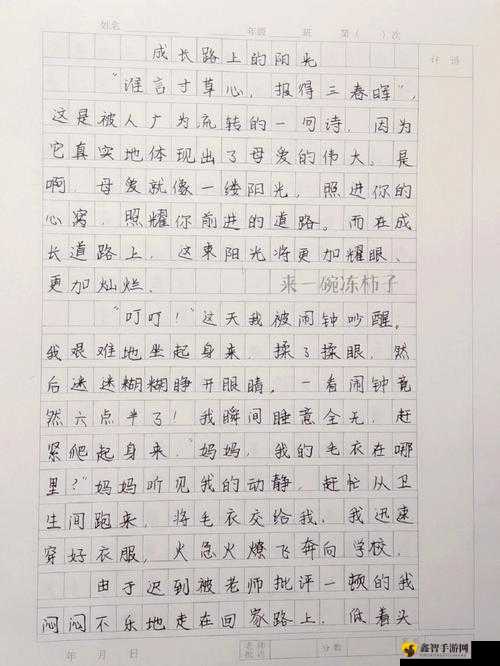 姓名 年级 班 第( )次
成长路上的阳光
评语
“谁言寸草心，报得三春晖”，
这是被人广为流转的一句诗，因为
它真实地体现出了母爱的伟大。是
啊，母爱就像一缕阳光，照进你的
心窝，照耀你前进的道路。而在成
长道路上，这束阳光将更加耀眼、
更加灿烂。
来一碗冻柿子
“叮叮！”这天我被闹钟吵醒。
我艰难地坐起身来，揉了揉眼，然
后迷迷糊糊睁开眼睛。一看闹钟竟
然六点半了！我瞬间睡意全无，赶
紧爬起身来。“妈妈，我的毛衣在哪
里？”妈妈听见我的动静，赶忙从卫
生间跑来，将毛衣交给我，我迅速
穿好衣服，火急火燎飞奔向学校。
由于迟到被老师批评一顿的我
闷闷不乐地走在回家路上，低着头
年 月 日
老师
批点
分数
鑫智手游网